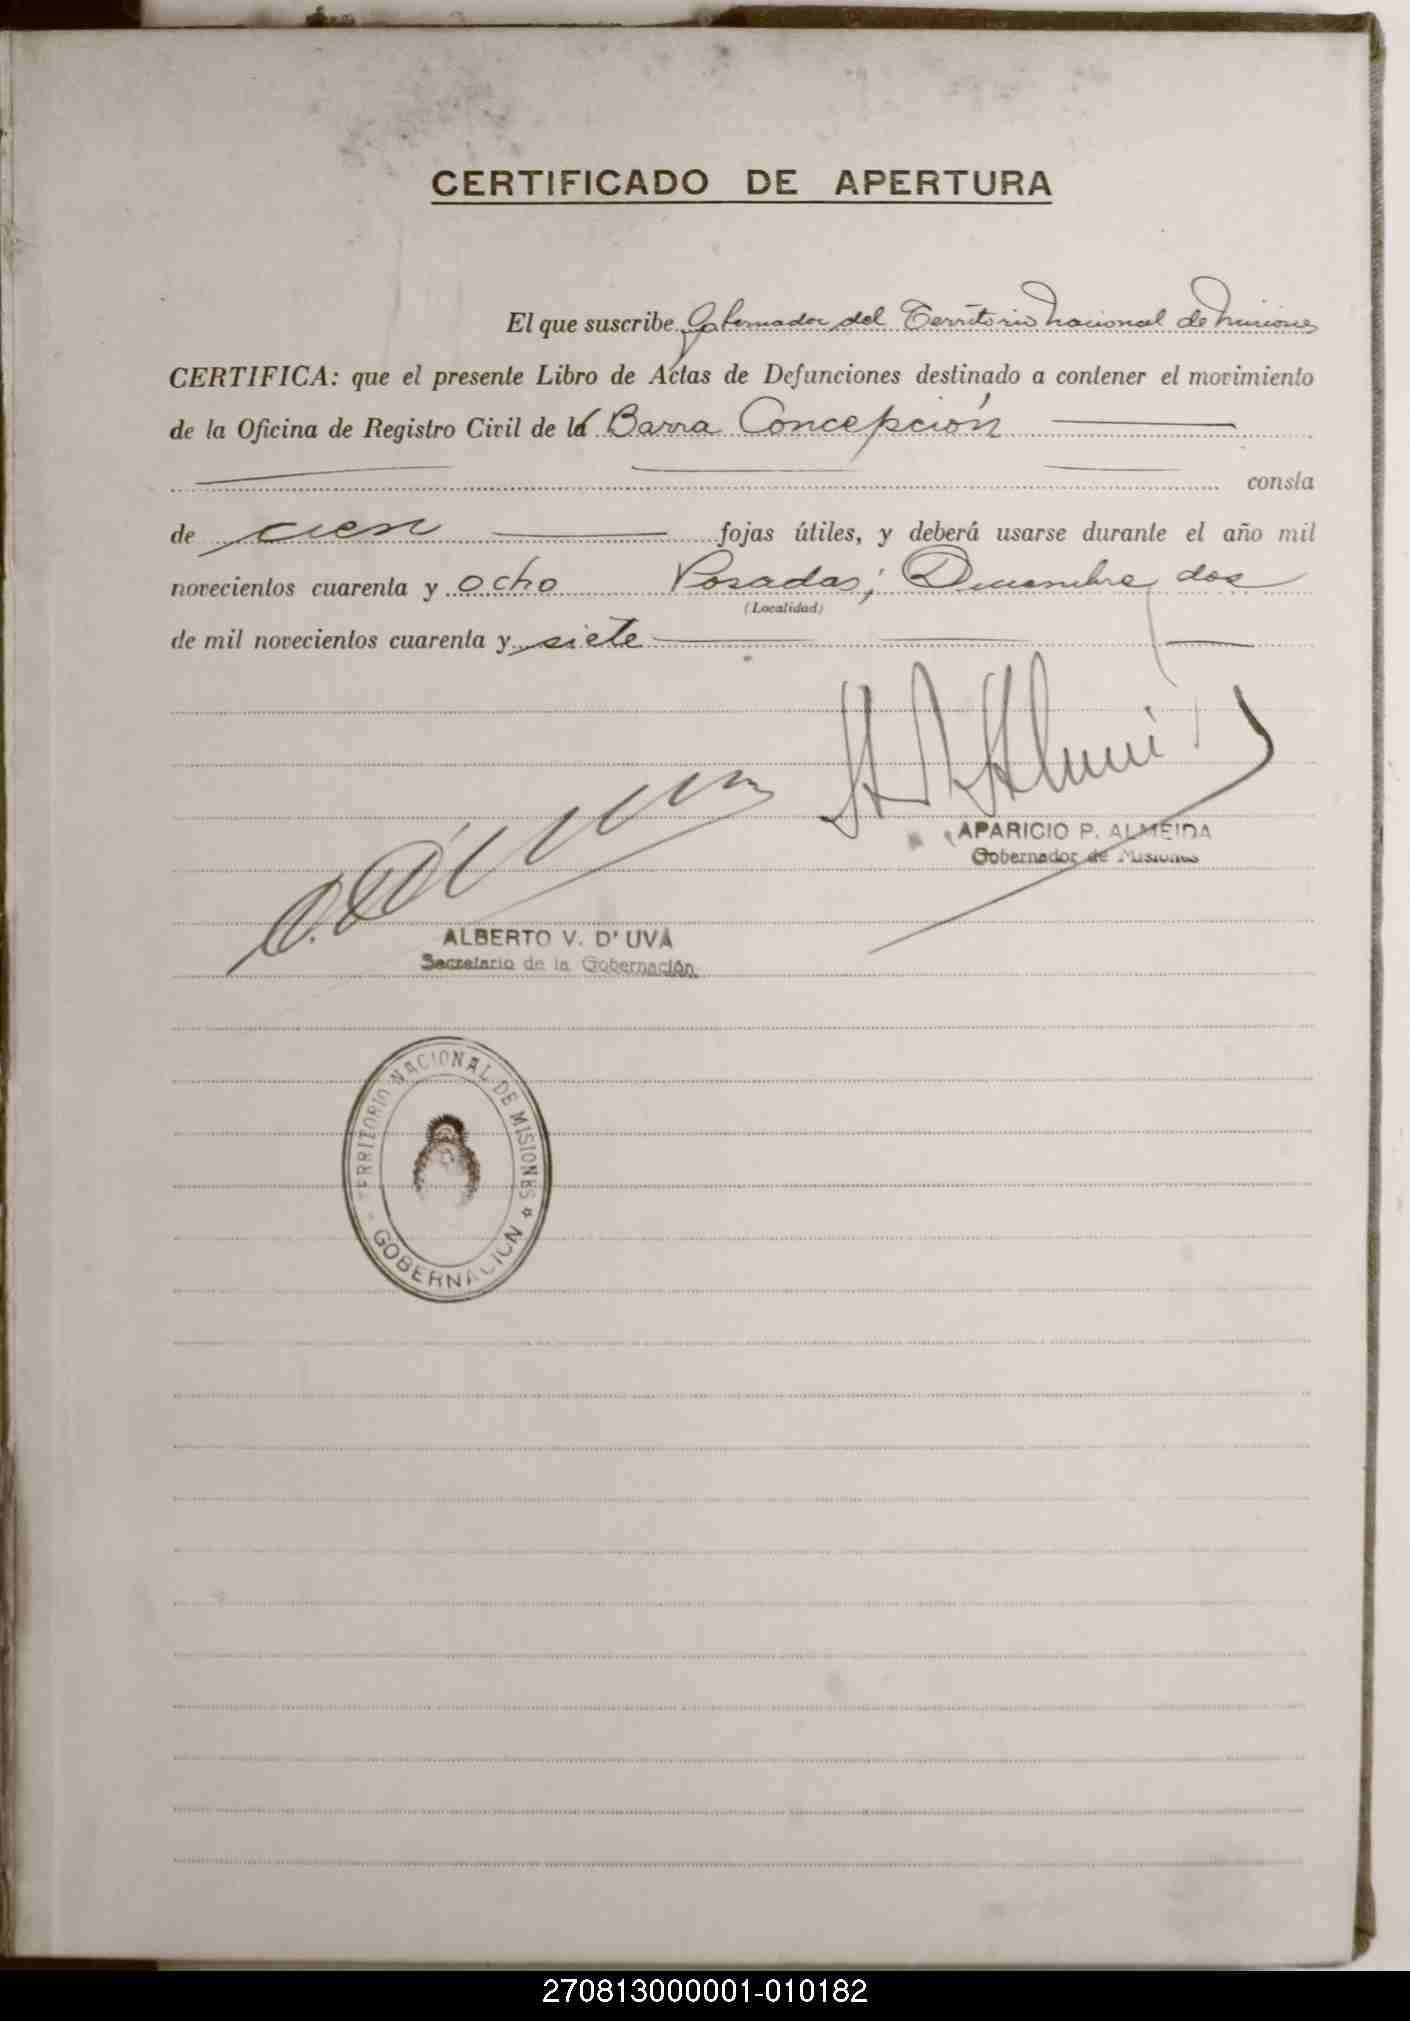 CERTIFICADO DE APERTURA
El que suscribe Gobernador del Territorio Nacional de Misiones
CERTIFICA: que el presente Libro de Actas de Defunciones destinado a contener el movimiento
de la Oficina de Registro Civil de la Barra Concepción
consta
de cien fojas útiles, y deberá usarse durante el año mil
novecientos cuarenta y ocho Posadas, Diciembre dos
(Localidad)
de mil novecientos cuarenta y siete
APARICIO P. ALMEIDA
Gobernador de Misiones
ALBERTO V. D' UVA
Secretario de la Gobernación
TERRITORIO NACIONAL DE MISIONES
GOBERNACION
270813000001-010182